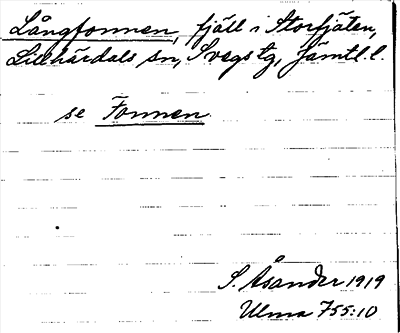 Långfonnen, fjäll i Storfjäten,
Lillhärdals sn, Svegs tg, Jämtl. l.
se Fonnen.
S. Åsander 1919
Ulma 755:10